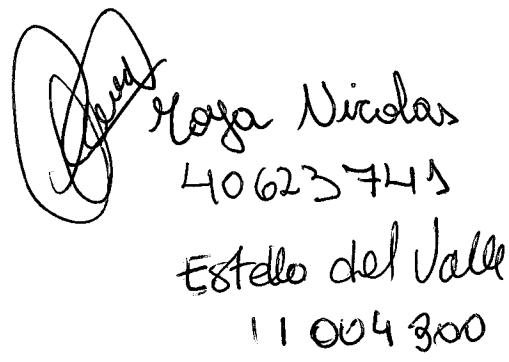 Moya Nicolas
40623741
Estello del Valle
11004300